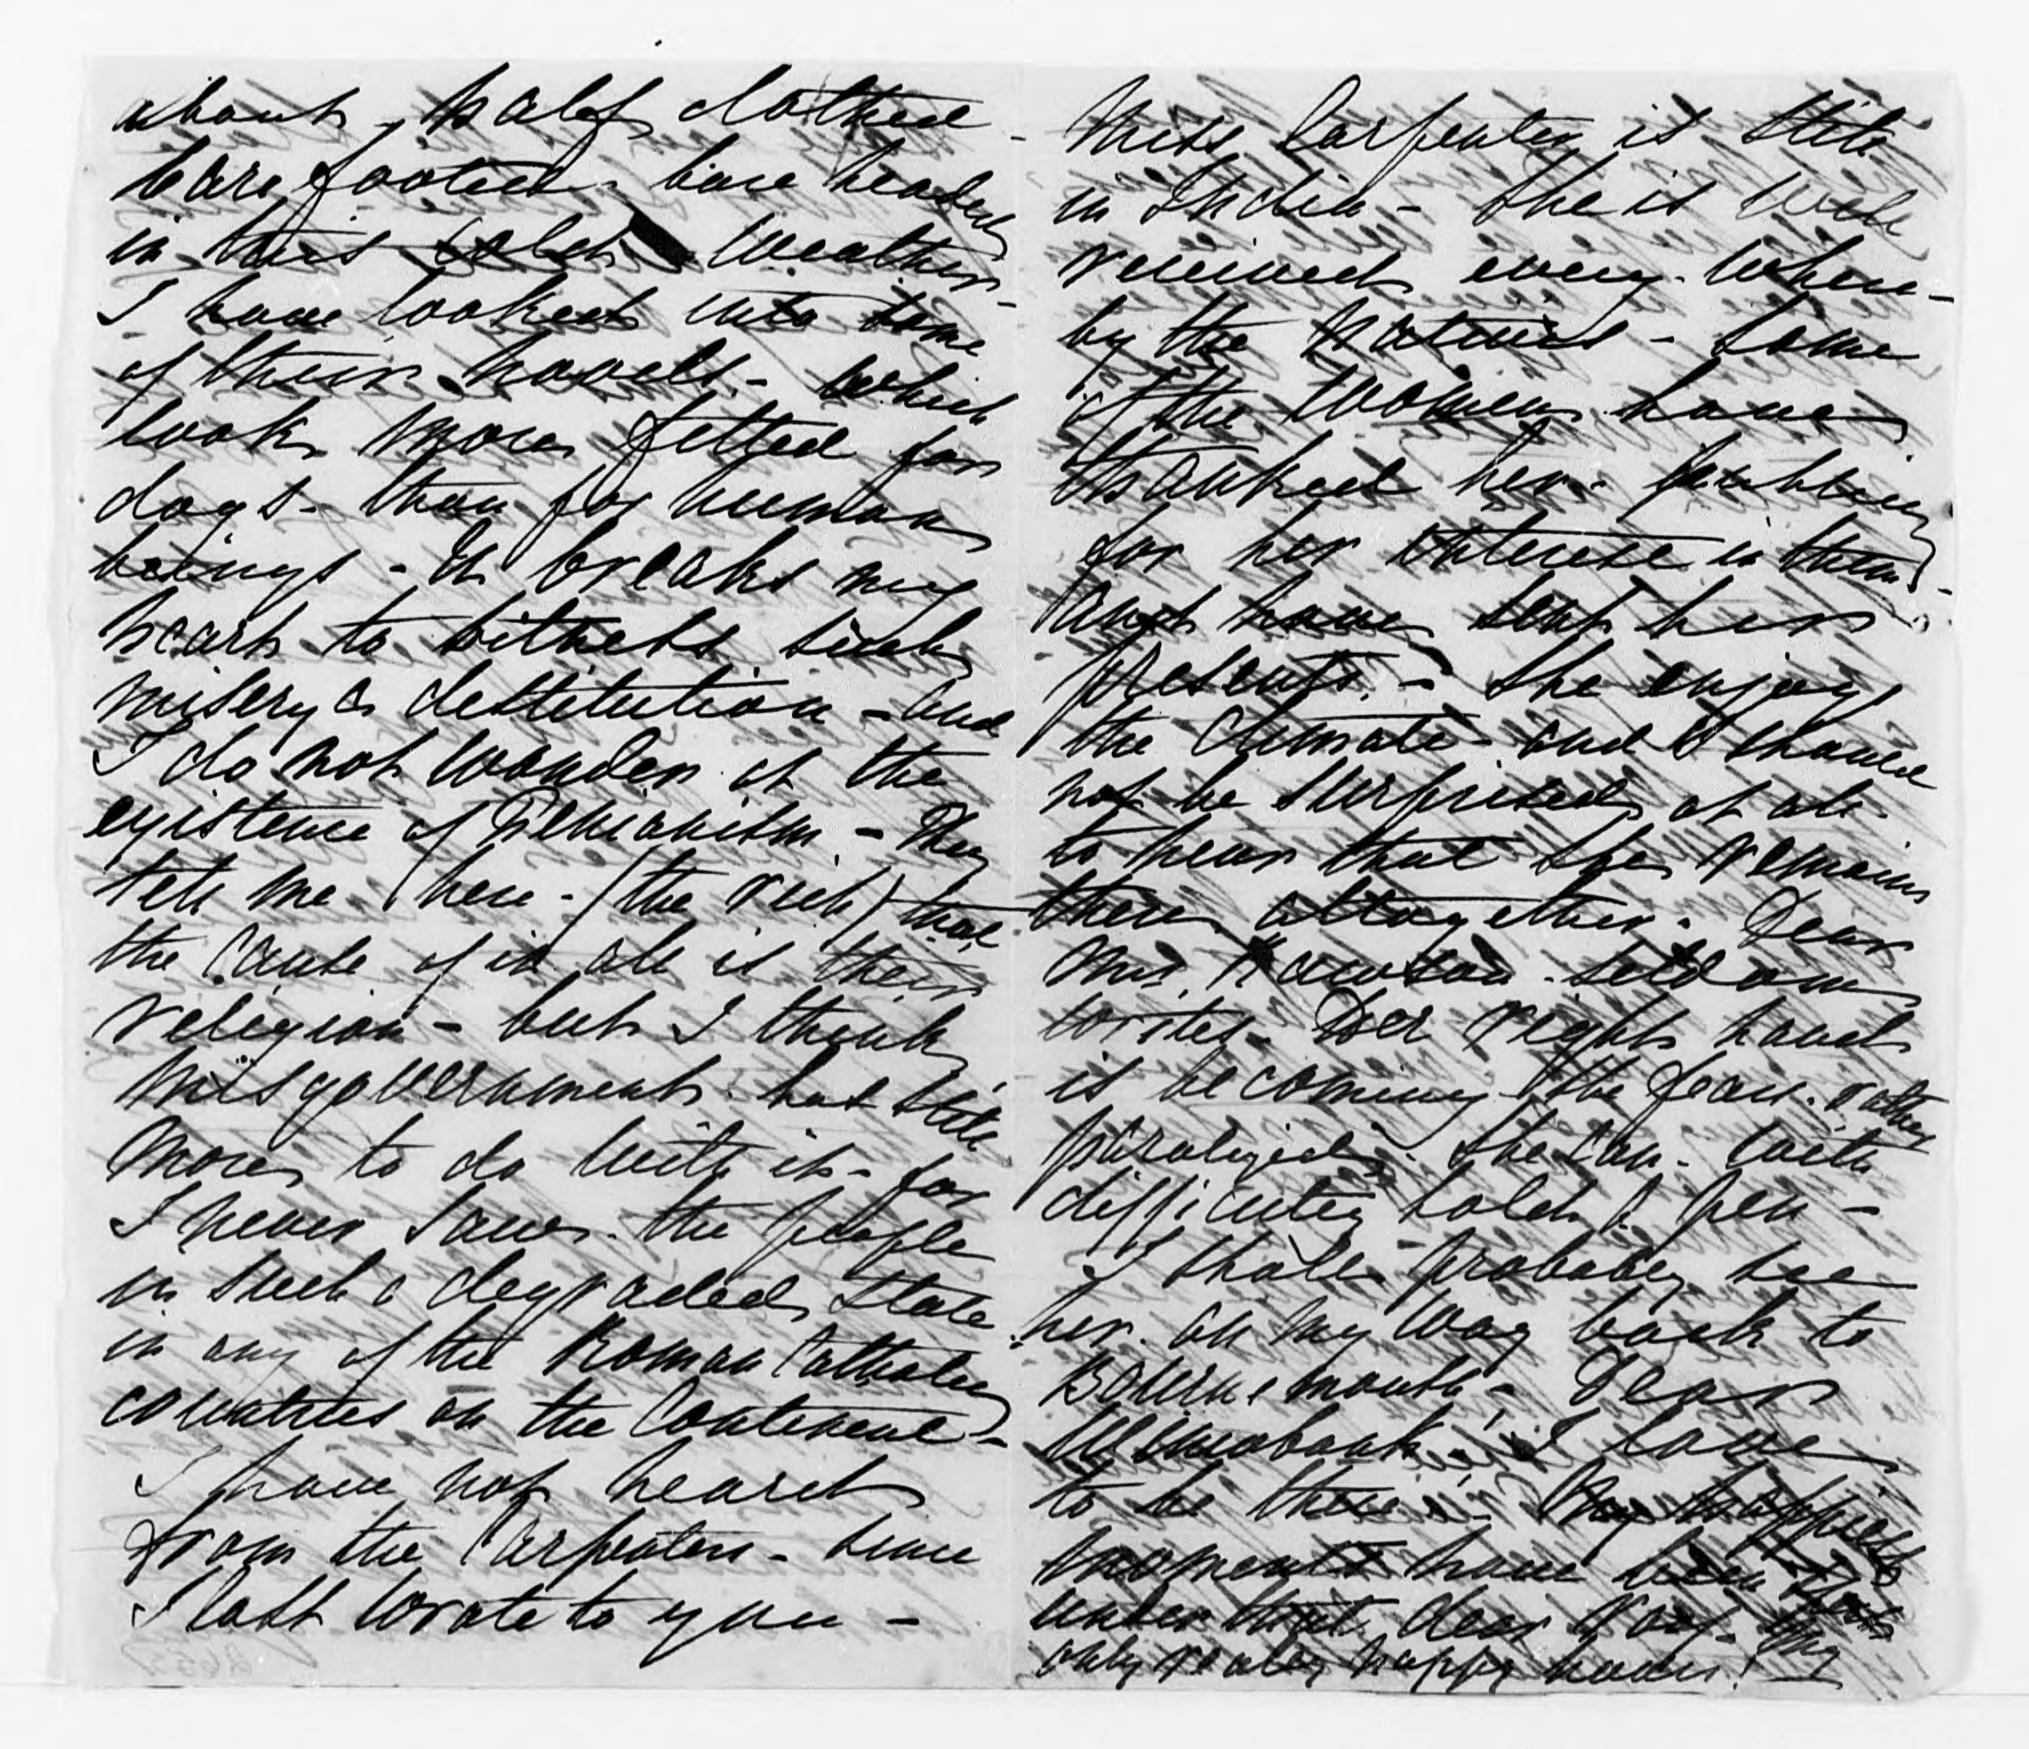 about - half clothed -
bare footed - bare headed
in this cold weather -
I have looked into some
of their hovels - which
look more fitted for
dogs - than for human
beings - It breaks my
heart to witness such
misery & destitution - and
I do not wonder at the
existence of Fenianism - They
tell me here - (the rich) that
the cause of it all is their
religion - but I think
misgovernment has still
more to do with it - for
I never saw the people
in such a degraded state
in any of the Roman Catholic
countries on the Continent -
I have not heard
from the Carpenters - since
I last wrote to you -
Miss Carpenter is still
in India - She is well
received every where -
by the natives - Some
of the women have
thanked her -
for her interest in them -
and have sent her
presents - She enjoys
the Climate - and I should
not be surprised at all
to hear that she remains
there altogether - Dear
Mrs. Rawson seldom
writes - Her right hand
is becoming she fears rather
paralyzed - She can with
difficulty hold a pen -
I shall probably see
her on my way back to
Bournemouth - Dear
Wincobank! I love
to be there - My happiest
moments have been spent
under that dear roof - my
only really happy hours!